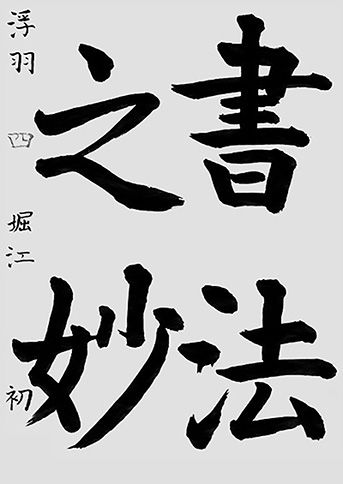 書法
之妙
浮羽 四 堀江 初